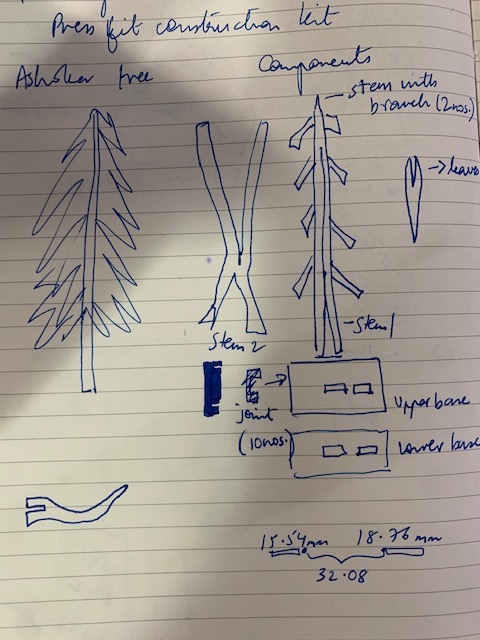 Press fit construction kit
Ashoka tree
Components
stem with
branch (2nos.)
→ leave
stem 1
stem 2
joint
(10nos.)
upper base
Lower base
15.54mm
18.76 mm
32.08